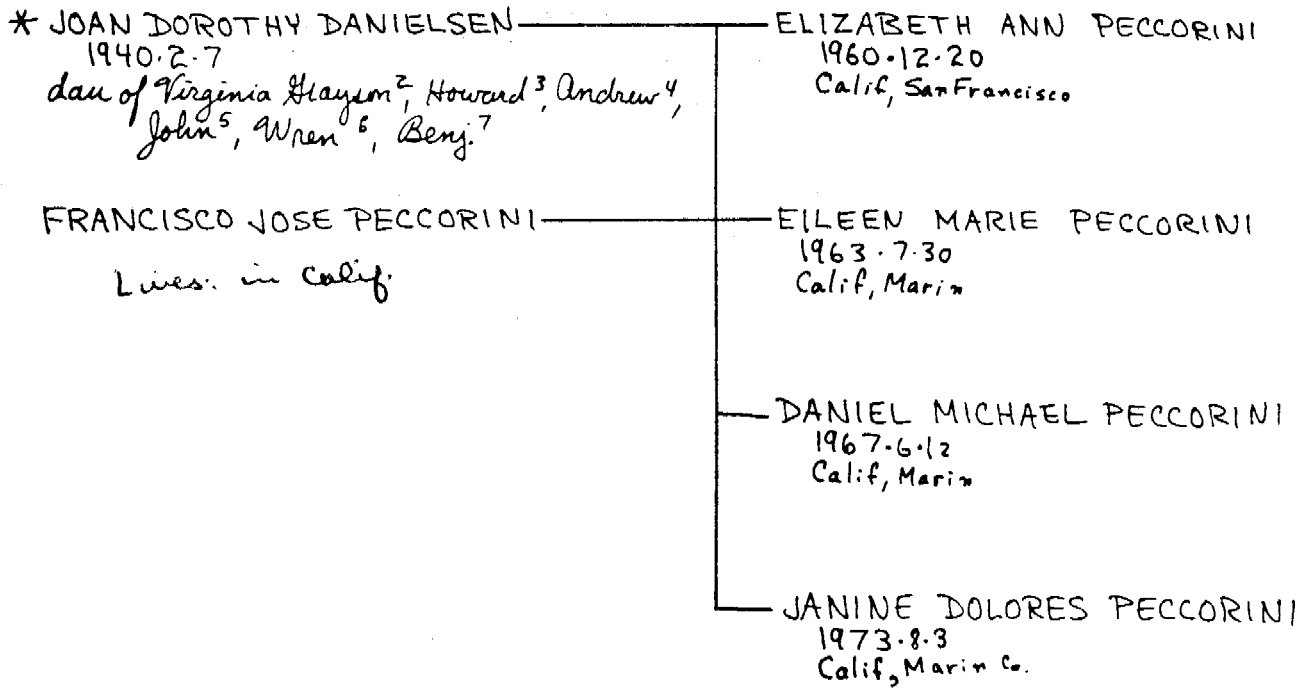 * JOAN DOROTHY DANIELSEN
1940.2.7
dau of Virginia Grayson², Howard³, Andrew⁴,
John⁵, Wren⁶, Benj.⁷
FRANCISCO JOSE PECCORINI
Lives. in Calif.
ELIZABETH ANN PECCORINI
1960.12.20
Calif, San Francisco
EILEEN MARIE PECCORINI
1963.7.30
Calif, Marin
DANIEL MICHAEL PECCORINI
1967.6.12
Calif, Marin
JANINE DOLORES PECCORINI
1973.8.3
Calif, Marin Co.